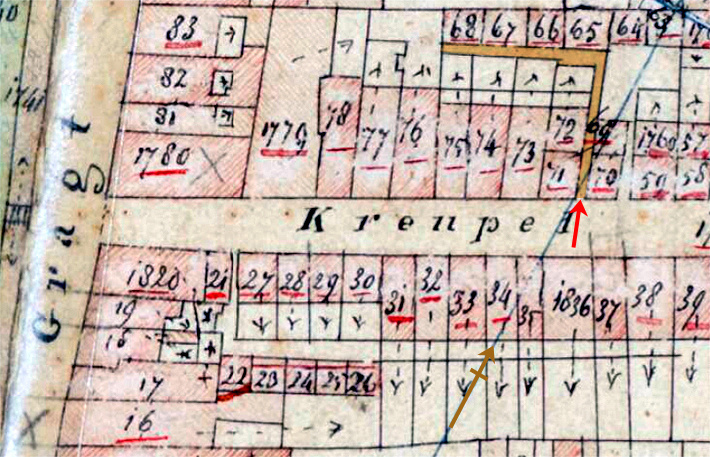 68 67 66 65 64 63
83
82
81
1780
1741
1779
78
77
76
75
74
73
72
71
69
70
1760
57
59
58
Gragt
Krenpel
1820
21
19
18
17
16
27 28 29 30
31
32
33
34
35
1836
37
38
39
22 23 24 25 26